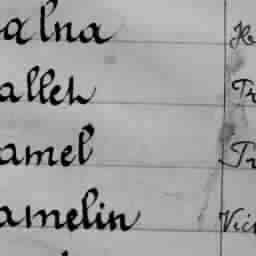 alna He
allet Tr
amel Tr
amelin Vic